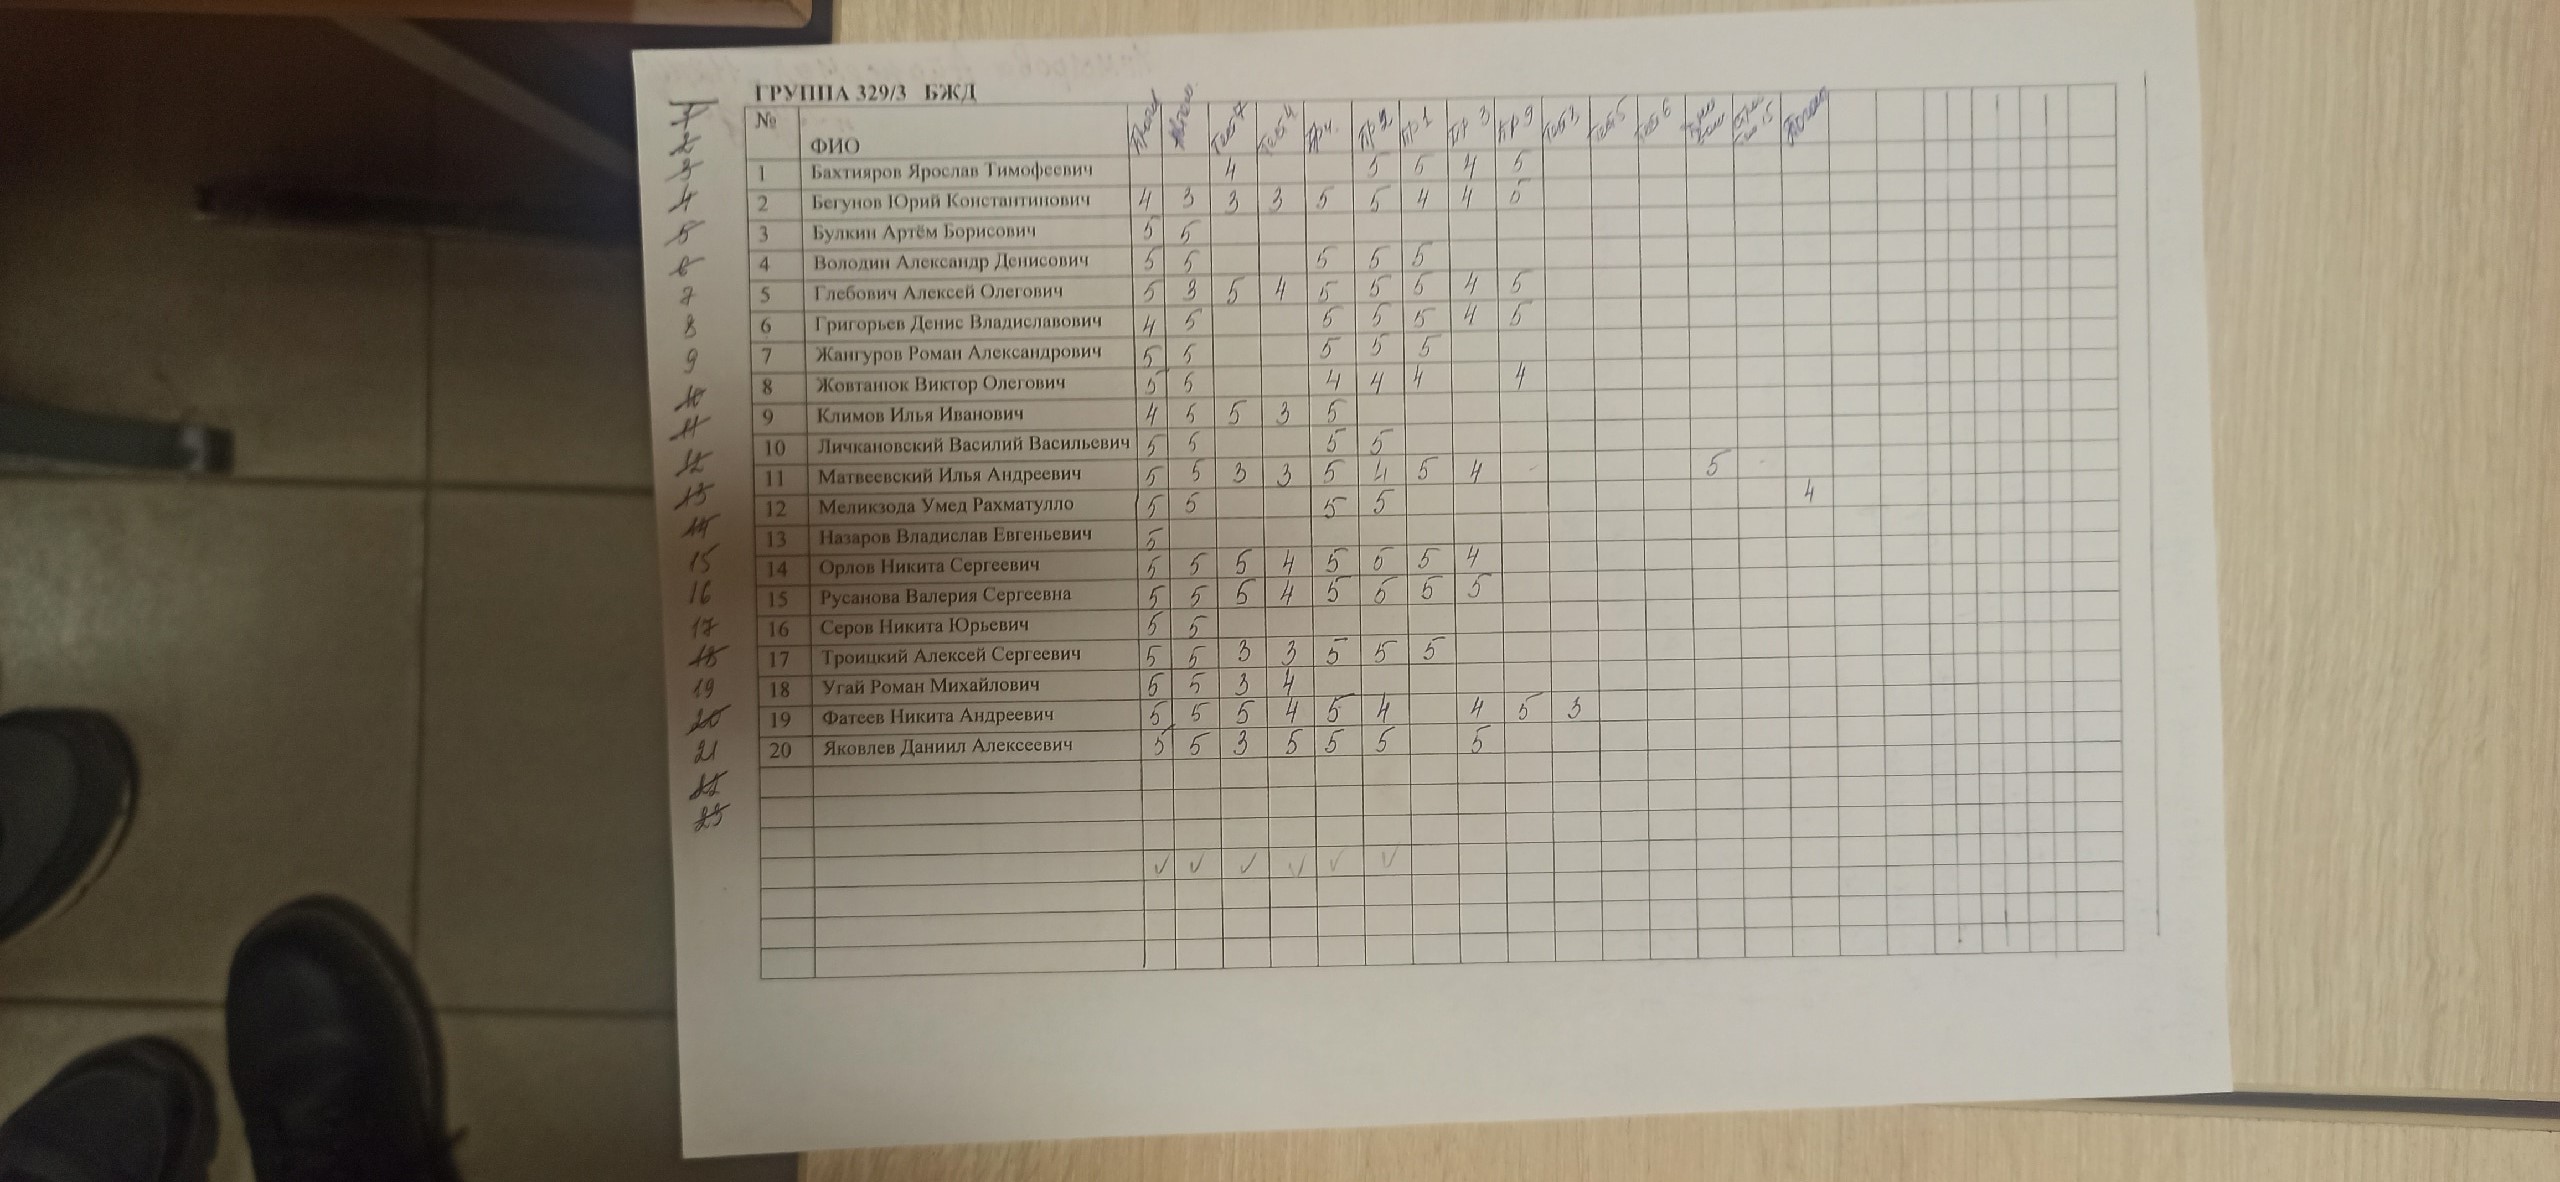 ГРУППА 329/3 БЖД
№ ФИО Тест 7 Тест 4 Пр4. ПР 2 ПР 1 ПР 3 ПР 9 Тест 3 Тест 5 Тест 6
1 Бахтияров Ярослав Тимофеевич 4 5 5 4 5
2 Бегунов Юрий Константинович 4 3 3 3 5 5 4 4 5
3 Булкин Артём Борисович 5 5
4 Володин Александр Денисович 5 5 5 5 5
5 Глебович Алексей Олегович 5 3 5 4 5 5 5 4 5
6 Григорьев Денис Владиславович 4 5 5 5 5 4 5
7 Жангуров Роман Александрович 5 5 5 5 5
8 Жовтанюк Виктор Олегович 5 5 4 4 4 4
9 Климов Илья Иванович 4 5 5 3 5
10 Личкановский Василий Васильевич 5 5 5 5
11 Матвеевский Илья Андреевич 5 5 3 3 5 4 5 4 5
12 Меликзода Умед Рахматулло 5 5 5 5 4
13 Назаров Владислав Евгеньевич 5
14 Орлов Никита Сергеевич 5 5 5 4 5 5 5 4
15 Русанова Валерия Сергеевна 5 5 5 4 5 5 5 5
16 Серов Никита Юрьевич 5 5
17 Троицкий Алексей Сергеевич 5 5 3 3 5 5 5
18 Угай Роман Михайлович 5 5 3 4
19 Фатеев Никита Андреевич 5 5 5 4 5 4 4 5 3
20 Яковлев Даниил Алексеевич 5 5 3 5 5 5 5
1
2
3
4
5
6
7
8
9
10
11
12
13
14
15
16
17
18
19
20
21
22
23